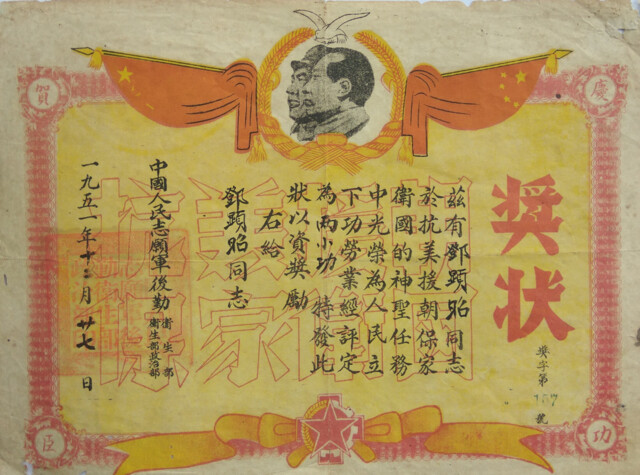 慶賀
功臣
獎状
獎字第
號
茲有鄧昭同志
於抗美援朝保家
衛國的神聖任務
中光榮為人民立
下功勞業經評定
為兩小功 特發此
狀以資獎勵
右給
鄧昭同志
中國人民志願軍後勤
衛生部
衛生部政治部
一九五一年十二月廿七日
抗美援朝
保家衛國